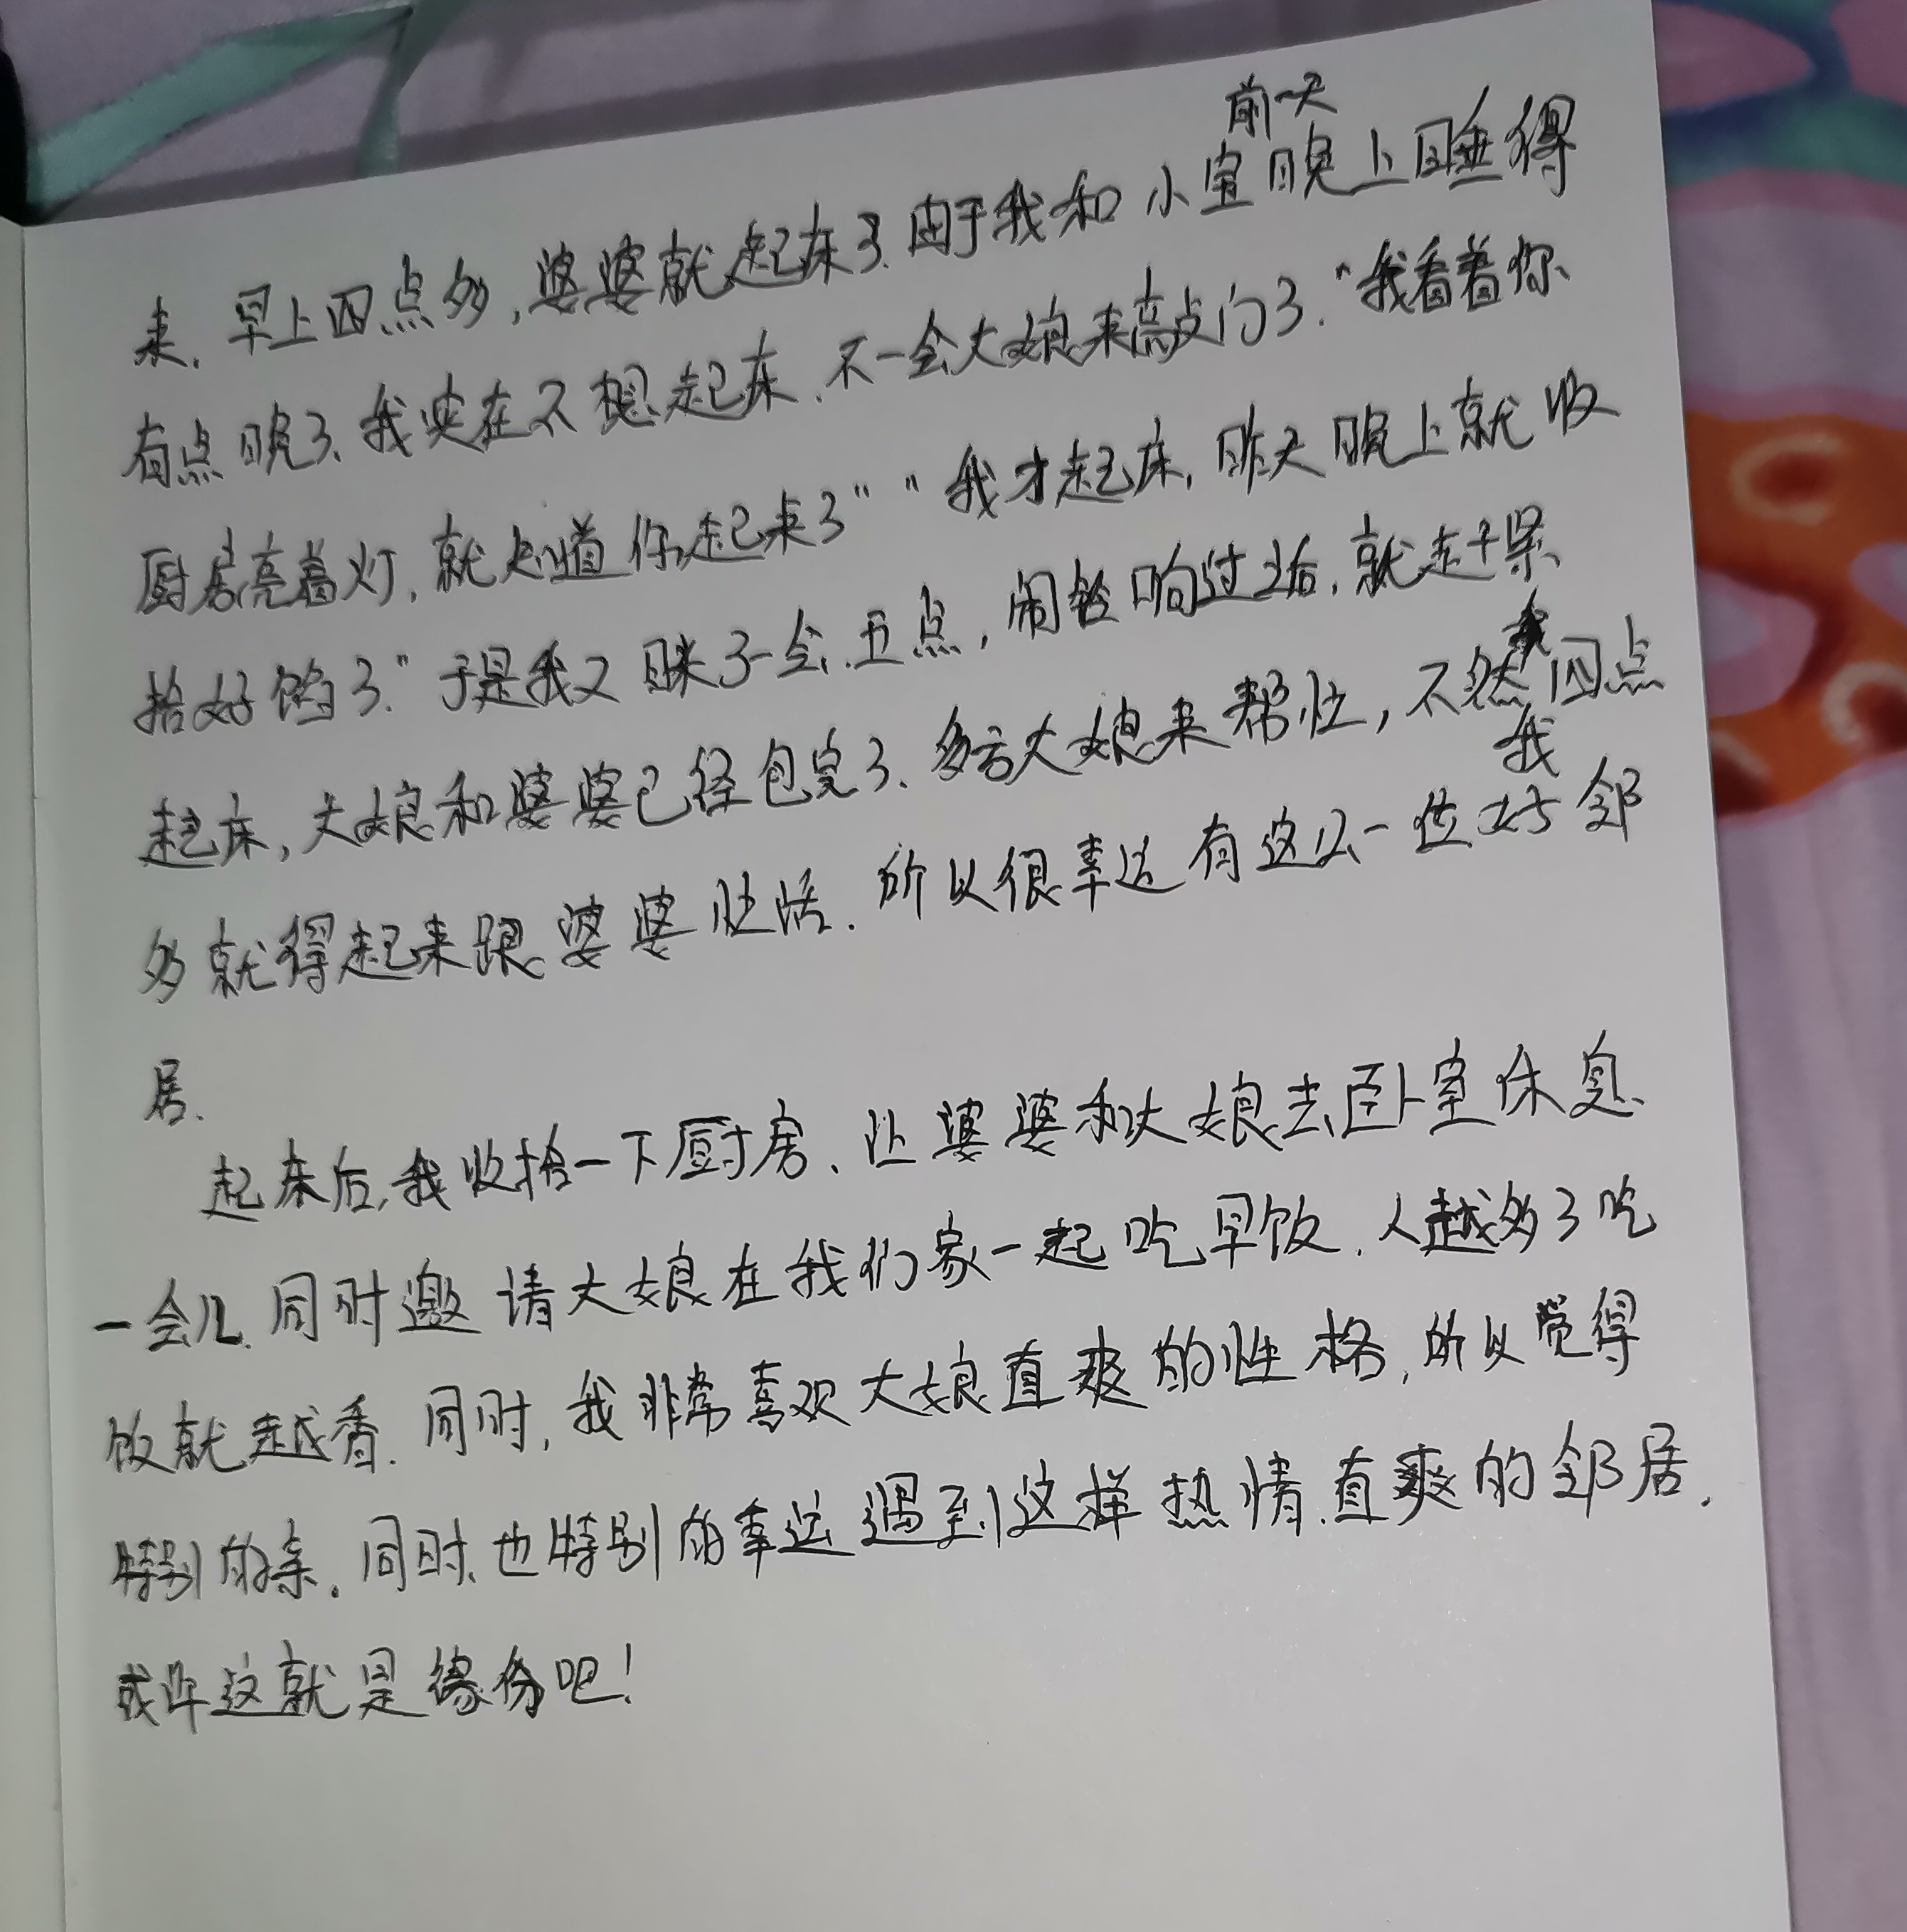 前一天
来。早上四点多，婆婆就起床了。由于我和小宝晚上睡得
有点晚了、我实在不想起床。不一会大娘来敲门了。"我看着你
厨房亮着灯，就知道你起来了""我才起床，昨天晚上就收
拾好馅了。"于是我又眯了一会。五点，闹铃响过后，就赶紧
起床，大娘和婆婆已经包完了、多亏大娘来帮忙，不然四点
我
多就得起来跟婆婆忙活．所以很幸运有这么一位好邻
居．
起床后，我收拾一下厨房、让婆婆和大娘去卧室休息
一会儿．同时邀请大娘在我们家一起吃早饭．人越多了吃
饭就越香．同时，我非常喜欢大娘直爽的性格，所以觉得
特别的亲．同时、也特别的幸运遇到这样热情、直爽的邻居．
或许这就是缘份吧！